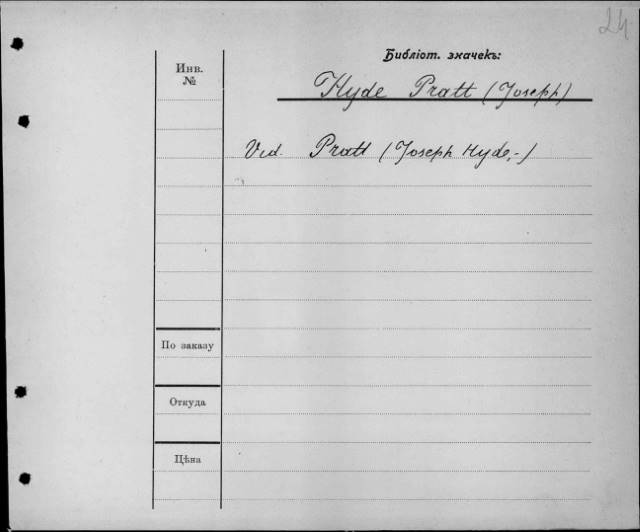 24
Библіот. значекъ:
Инв.
№
Hyde Pratt (Joseph)
Vid. Pratt (Joseph Hyde,-)
По заказу
Откуда
Цѣна